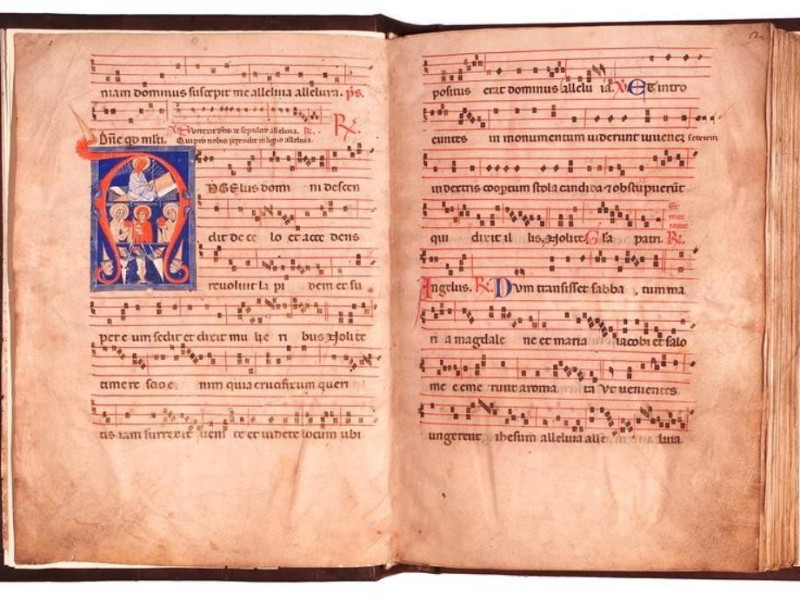 niam dominus suscepit me alleluia alleluia. ps.
Dñe qd mlti.
R.
NGELus domi ni descen
dit de ce lo et acce dens
reuoluit la pi dem et su
per e um sedit et dixit mu lie ri bus Nolite
timere scio e nim quia crucifixum queri
tis iam surrexit ueni te et uidete locum ubi
positus erat dominus allelu ia. V. ET intro
euntes in monumentum uiderunt iuuenez
in dextris coopertum stola candida & obstupuerūt
qui dixit il lis. Nolite. Gla patri. R.
Angelus. R. Dum transisset sabba tum ma
ri a magdale ne et maria iacobi et salo
me e me runt aroma ta Vt uenientes
ungerent ihesum alleluia alle luia.